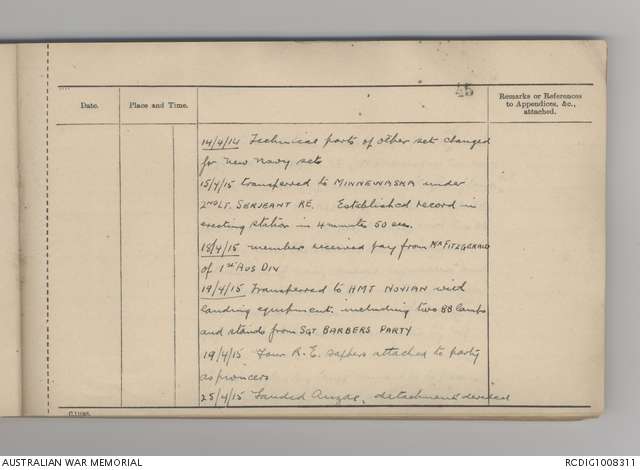 45
Date.
Place and Time.
Remarks or References
to Appendices, &c.,
attached.
14/4/14 Technical parts of other set changed
for new Navy sets
15/4/15 transferred to MINNEWASKA under
2ND LT. SERJEANT RE. Established record in
erecting station in 4 minutes 50 secs.
18/4/15 members received pay from Mr FITZGERALD
of 1st AUS DIV
19/4/15 Transferred to HMT NOVIAN with
landing equipment. including two BB lamps
and stands from SGT. BARBERS PARTY
19/4/15 Four R.E. sappers attached to party
as pioneers
25/4/15 Landed Anzac, detachment divided
AUSTRALIAN WAR MEMORIAL
RCDIG1008311